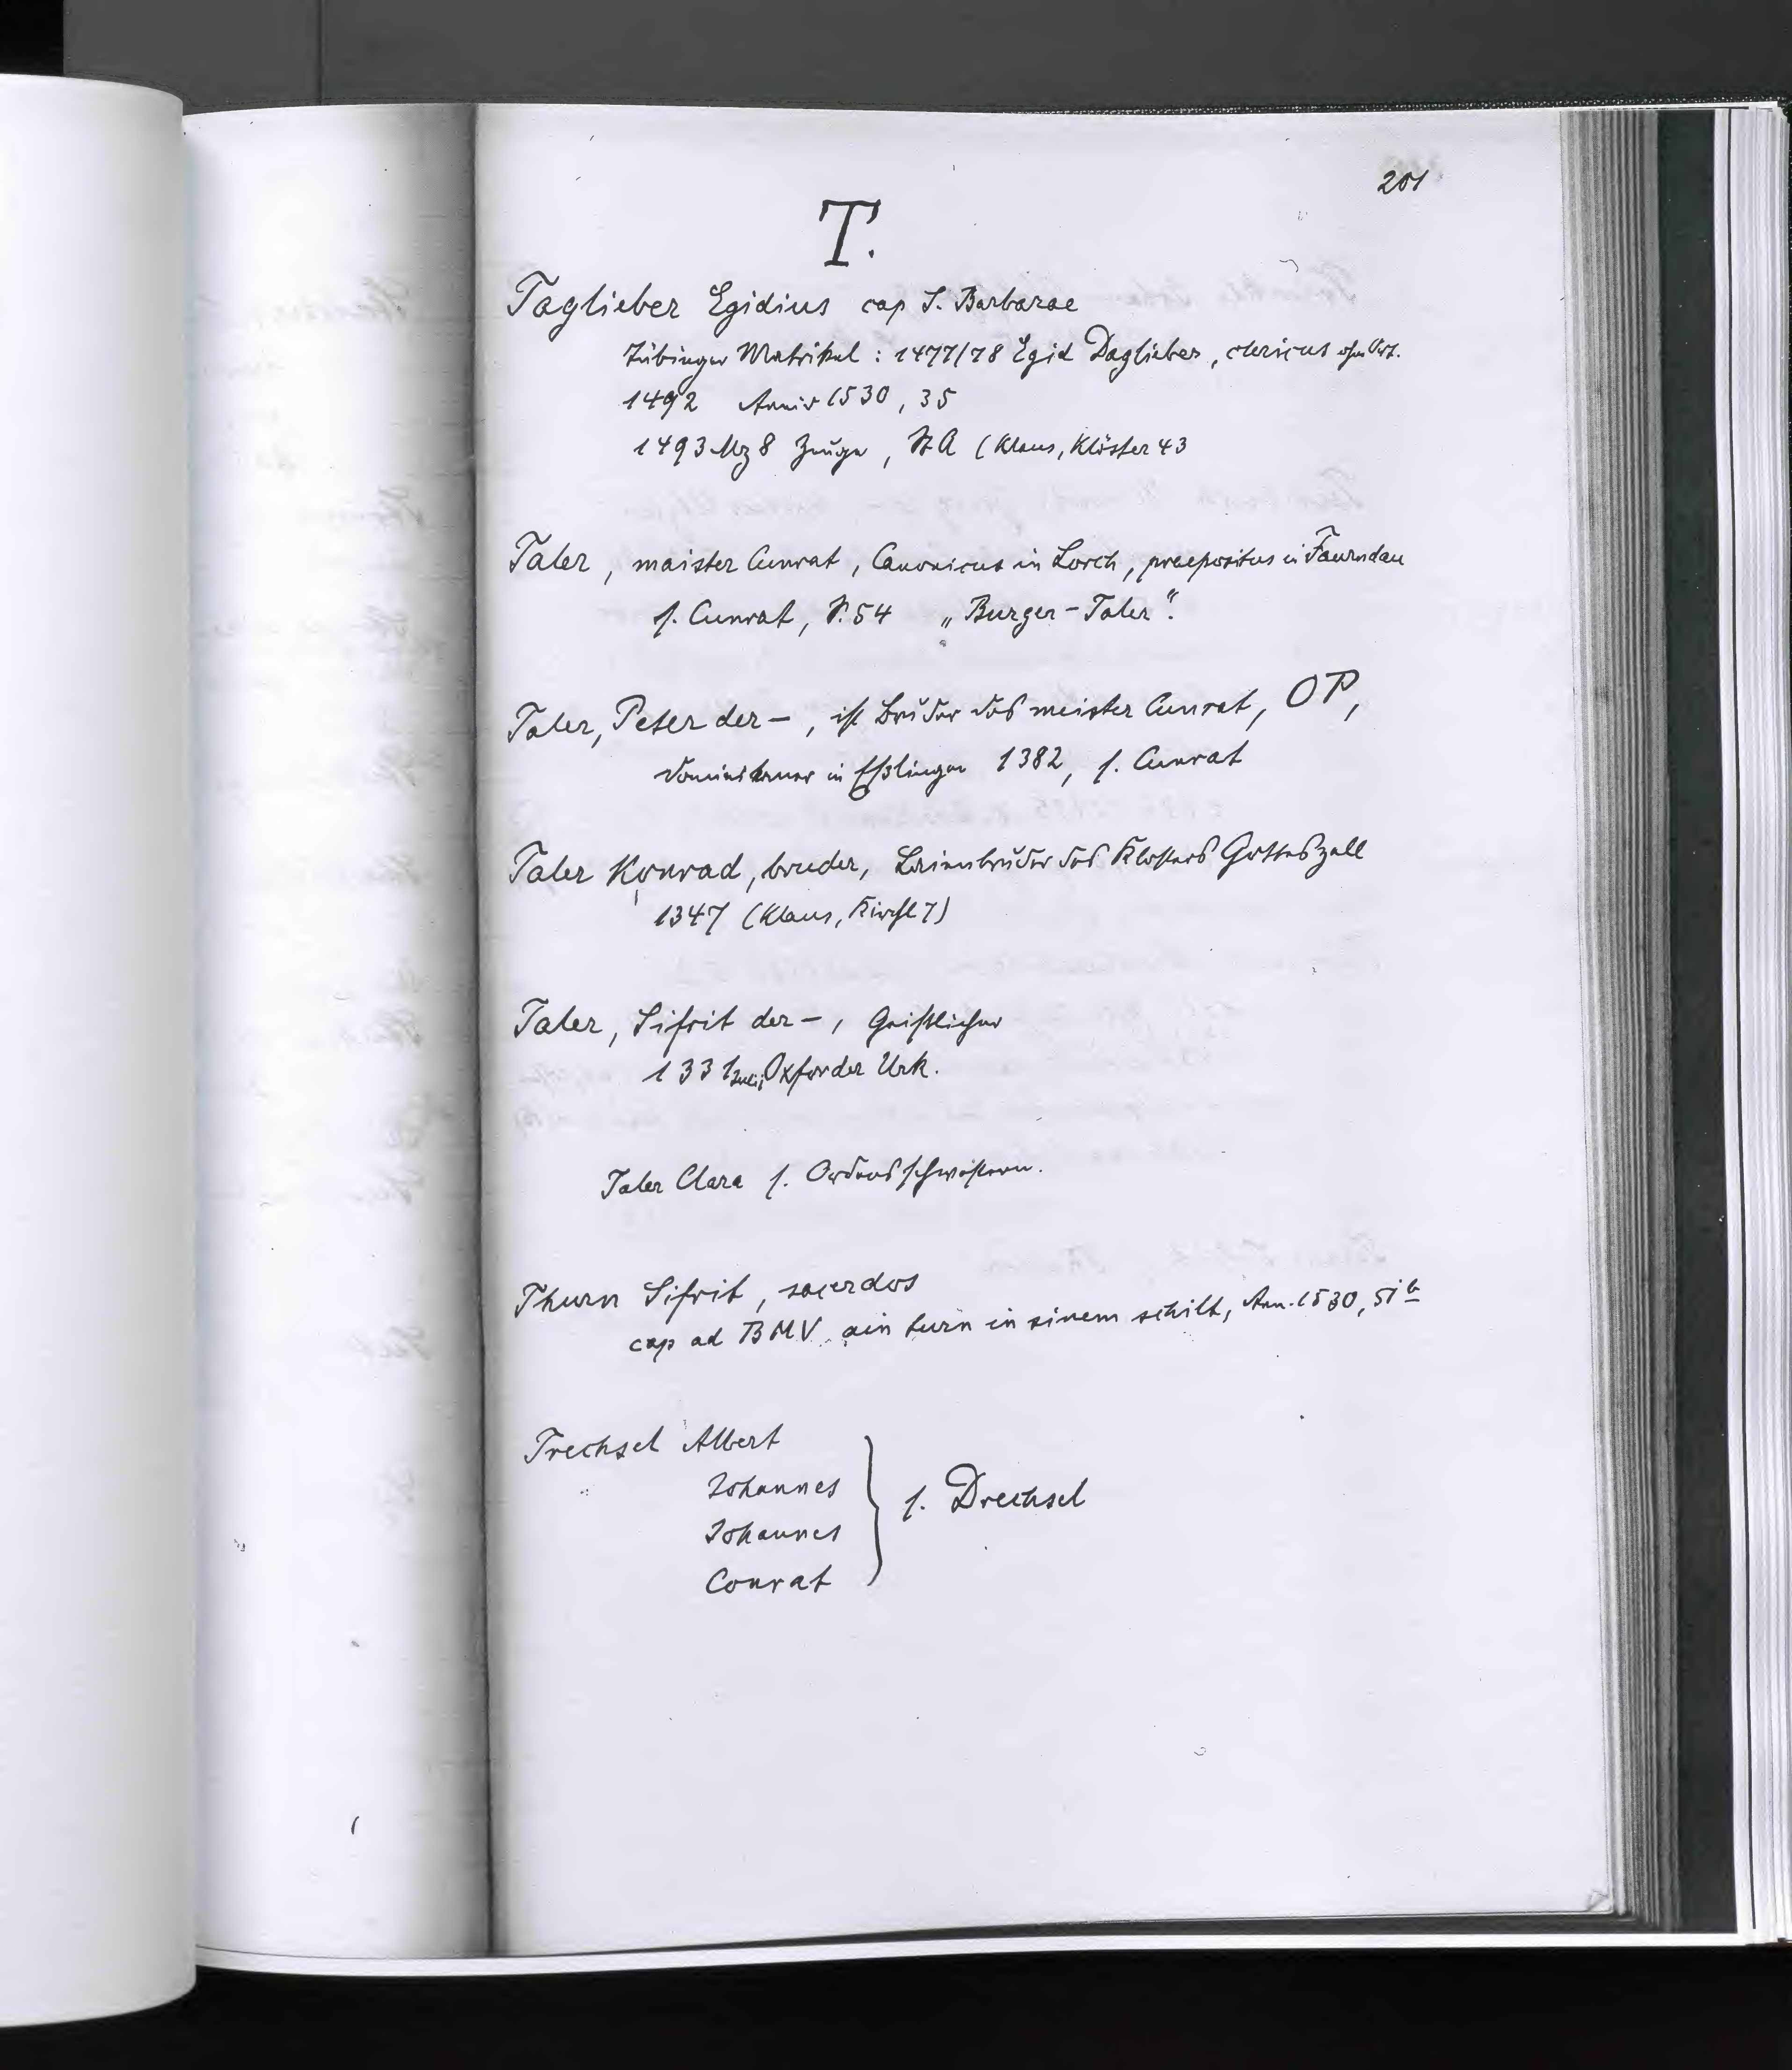 201
T.
Taglieber Egidius cap S. Barbarae
Tübinger Matrikel : 1477/78 Egid Daglieber, clericus
1492 Anniv 1530, 35
1493 Mz 8 Zeuge, StA (Klaus, Klöster 43
Taler, maister Cunrat, Canonicus in Lorch, praepositus in Faurndau
s. Cunrat, S. 54 „Burger-Taler".
Taler, Peter der –, ist Bruder des meister Cunrat, OP,
Dominikaner in Eßlingen 1382, s. Cunrat
Taler Konrad, bruder, Laienbruder des Klosters Gotteszell
1347 (Klaus, Kirchl 7)
Taler, Sifrit der –, Geistlicher
1331 Juli Oxforder Urk.
Taler Clara s. Ordensschwestern.
Thurn Sifrit, sacerdos
cap ad BMV. ain turn in sinem schilt, Ann. 1530, 51b
Trechsel Albert
Johannes
Johannes
Conrat
s. Drechsel